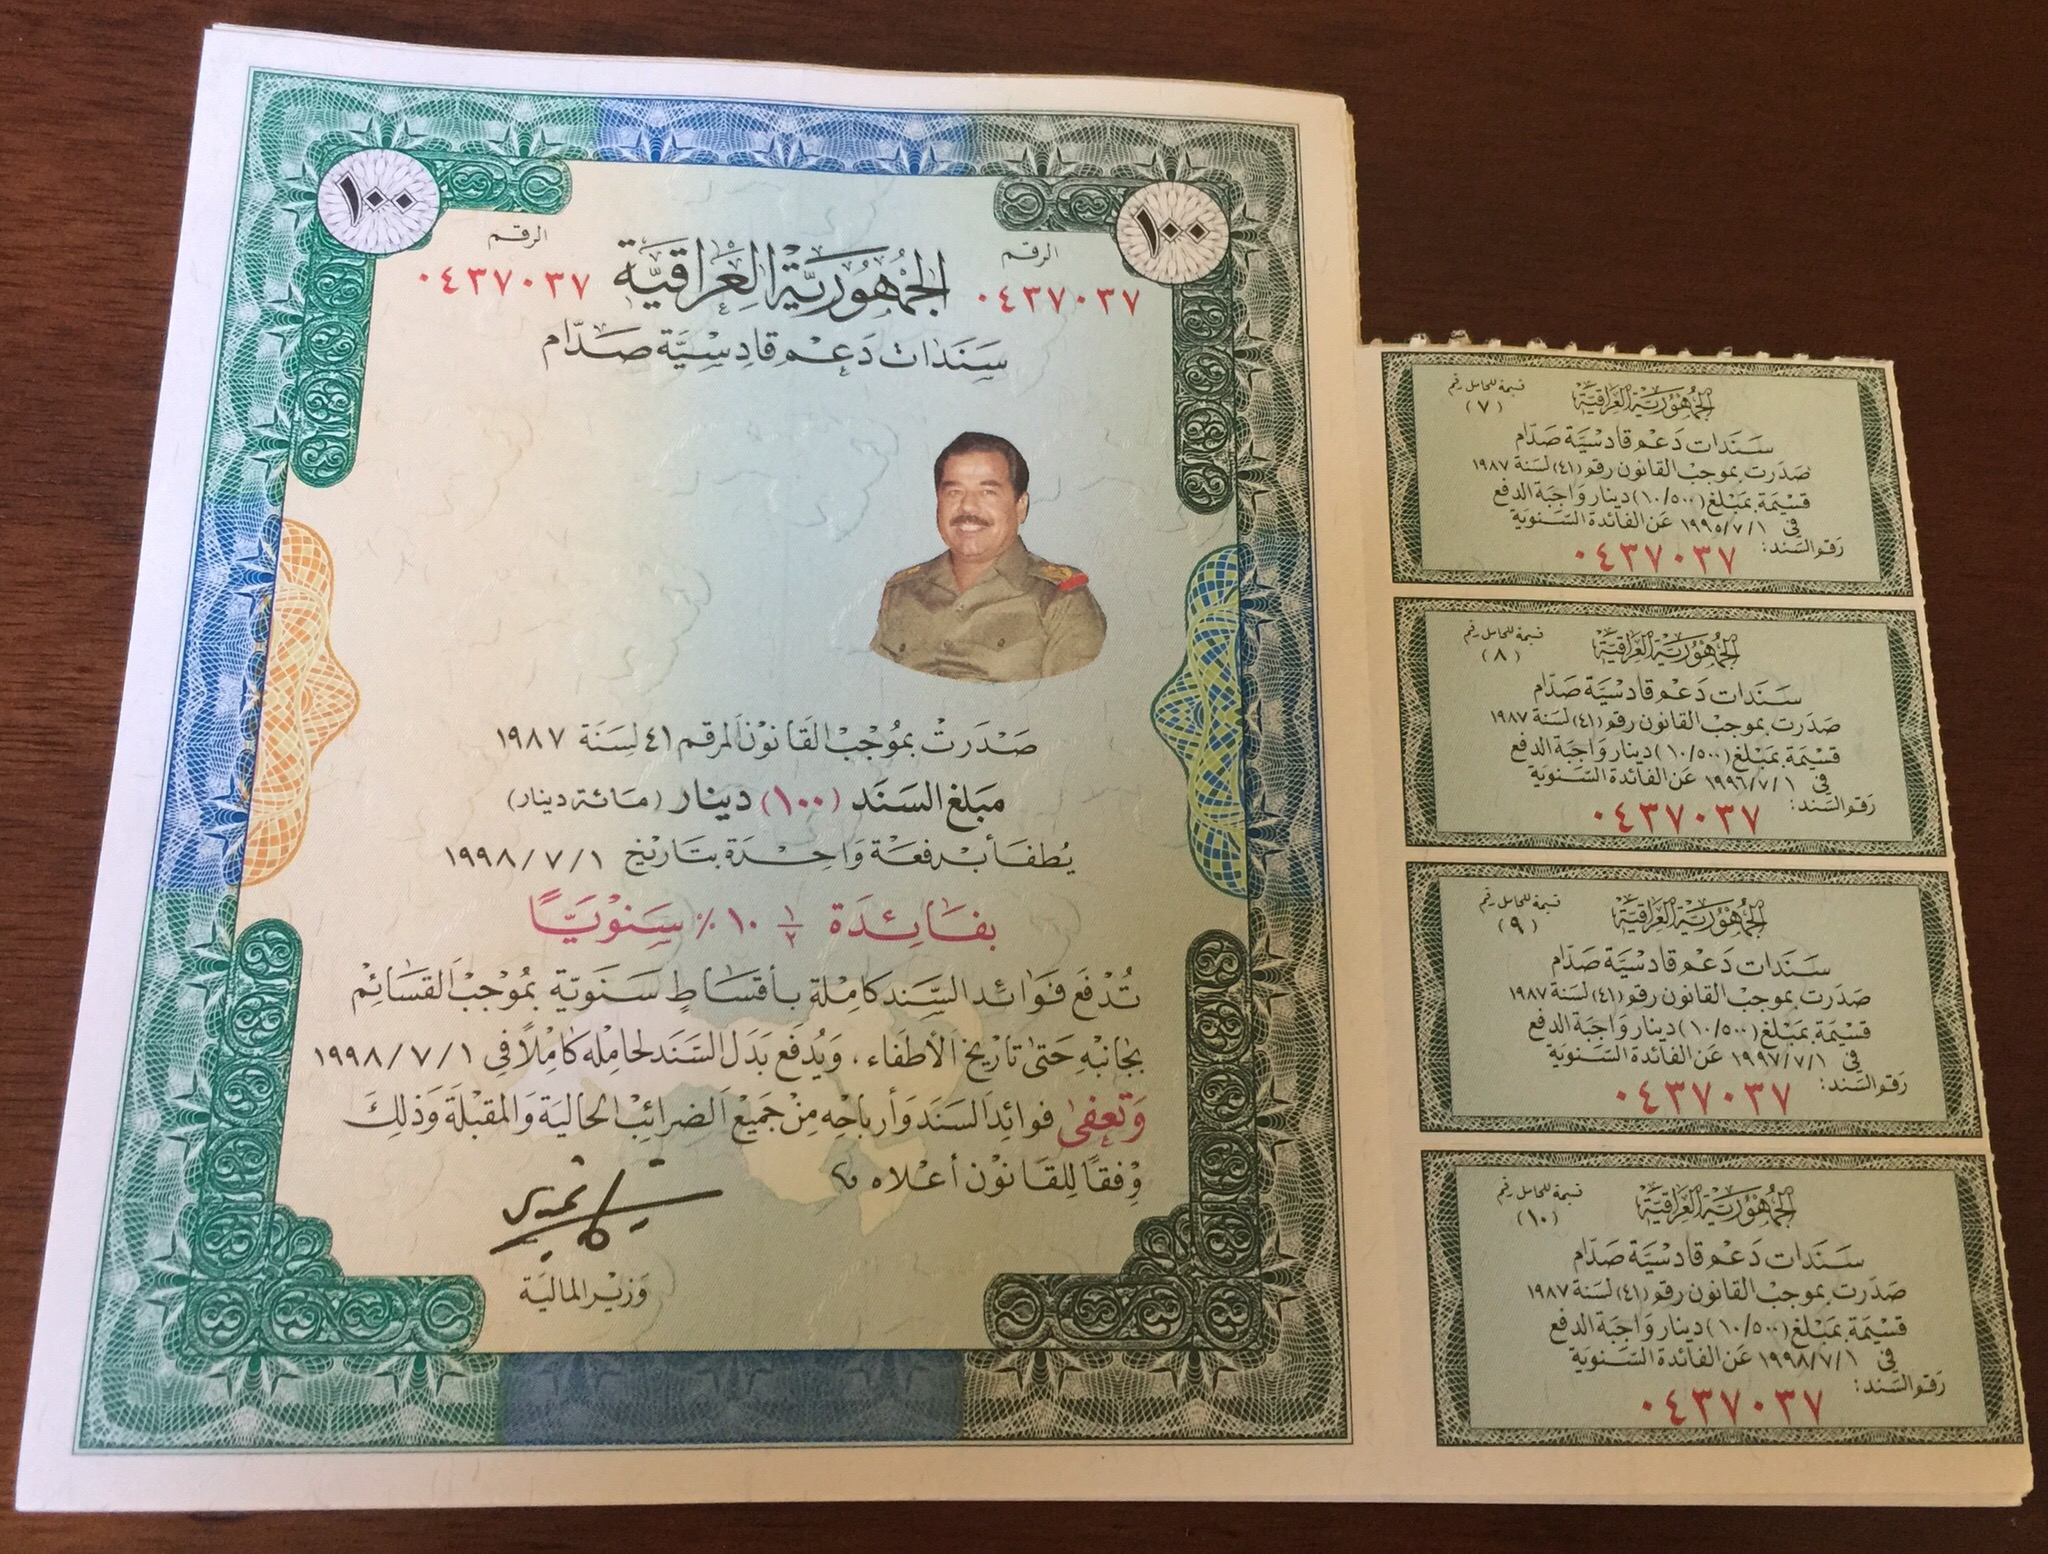 ١٠٠
١٠٠
الرقم
الرقم
٠٤٣٧٠٣٧
الجُمْهُورِيَّة العِرَاقيَّة
٠٤٣٧٠٣٧
سَنَدَات دَعْم قادِسيَّة صَدّام
صَدَرَتْ بمُوجبْ القَانوْن المرقم ٤١ لسَنَة ١٩٨٧
مَبلغ السَنَد (١٠٠) دينار (مَائة دينار)
يُطفَأ بدفعَة وَاحِدَة بتَاريْخ ١٩٩٨/٧/١
بفَائِدَة ١/٢ ١٠٪ سَنويّاً
تُدْفَع فَوَائد السَّنَد كامِلة بأقسَاطٍ سَنَويّة بمُوْجبْ القسَائم
بجَانبْهِ حَتىٰ تَاريْخ الأطفَاء، وَيُدفَع بَدَل السَّنَد لحَامِله كَامِلاً في ١٩٩٨/٧/١
وَتعفىٰ فوائد السَنَد وَأرباحِه مِنْ جَميْع الضرائِب الحَالية وَالمقبلَة وَذلِكَ
وِفقاً لِلقَانوْن أعْلاه
وَزيْر المالية
قسيمة للحامل رقم
(٧)
الجُمْهُوريَّة العِرَاقيَّة
سَنَدَات دَعْم قَادسيَّة صَدّام
صَدَرَت بموجَب القانون رقم (٤١) لسَنة ١٩٨٧
قسيْمَة بمَبْلغ (١٠/٥٠٠) دينار وَاجبَة الدفع
في ١٩٩٥/٧/١ عَن الفائدة السَّنَويَّة
رَقم السَند: ٠٤٣٧٠٣٧
قسيمة للحامل رقم
(٨)
الجُمْهُوريَّة العِرَاقيَّة
سَنَدَات دَعْم قَادسيَّة صَدّام
صَدَرَت بموجَب القانون رقم (٤١) لسَنة ١٩٨٧
قسيْمَة بمَبْلغ (١٠/٥٠٠) دينار وَاجبَة الدفع
في ١٩٩٦/٧/١ عَن الفائدة السَّنَويَّة
رَقم السَند: ٠٤٣٧٠٣٧
قسيمة للحامل رقم
(٩)
الجُمْهُوريَّة العِرَاقيَّة
سَنَدَات دَعْم قَادسيَّة صَدّام
صَدَرَت بموجَب القانون رقم (٤١) لسَنة ١٩٨٧
قسيْمَة بمَبْلغ (١٠/٥٠٠) دينار وَاجبَة الدفع
في ١٩٩٧/٧/١ عَن الفائدة السَّنَويَّة
رَقم السَند: ٠٤٣٧٠٣٧
قسيمة للحامل رقم
(١٠)
الجُمْهُوريَّة العِرَاقيَّة
سَنَدَات دَعْم قَادسيَّة صَدّام
صَدَرَت بموجَب القانون رقم (٤١) لسَنة ١٩٨٧
قسيْمَة بمَبْلغ (١٠/٥٠٠) دينار وَاجبَة الدفع
في ١٩٩٨/٧/١ عَن الفائدة السَّنَويَّة
رَقم السَند: ٠٤٣٧٠٣٧